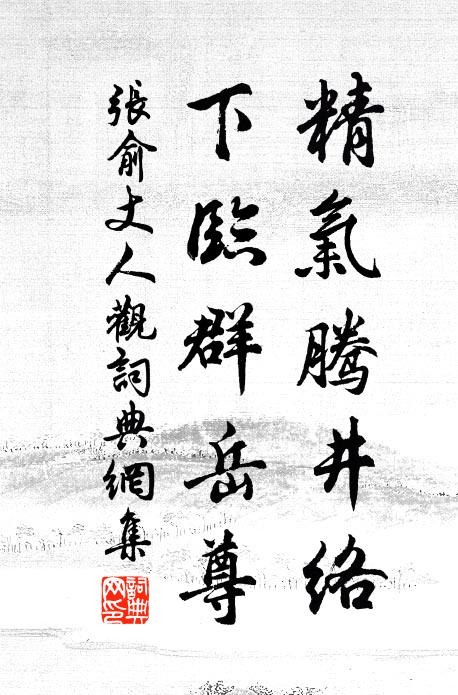 精氣騰井絡
下臨群岳尊
張俞丈人觀詞典網集
詞典网印